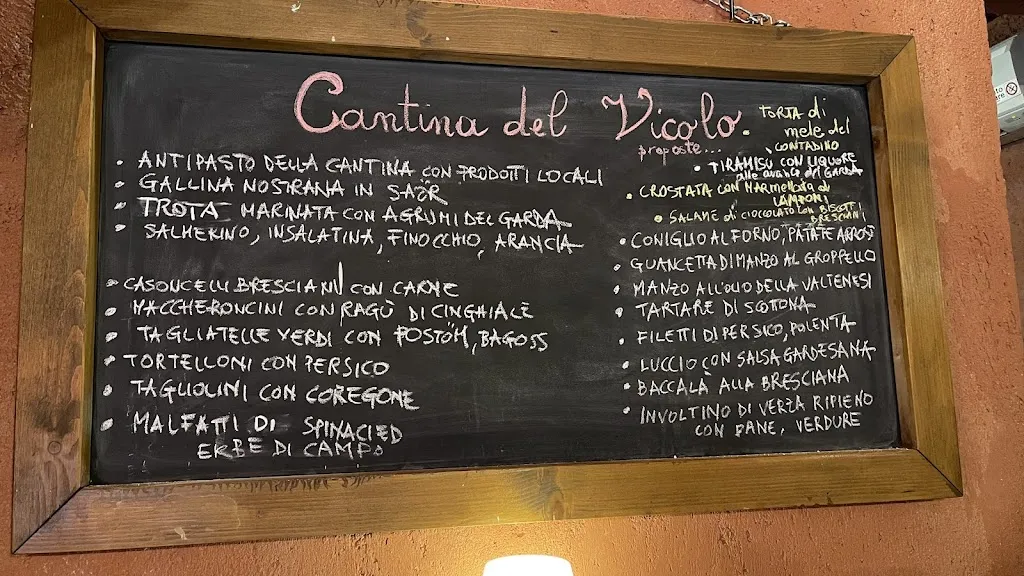 Cantina del Vicolo.
proposte...
• ANTIPASTO DELLA CANTINA CON PRODOTTI LOCALI
• GALLINA NOSTRANA IN SAÒR
• TROTA MARINATA CON AGRUMI DEL GARDA
• SALMERINO, INSALATINA, FINOCCHIO, ARANCIA
• CASONCELLI BRESCIANI CON CARNE
• MACCHERONCINI CON RAGÙ DI CINGHIALE
• TAGLIATELLE VERDI CON POSTÖM, BAGOSS
• TORTELLONI CON PERSICO
• TAGLIOLINI CON COREGONE
• MALFATTI DI SPINACI ED
ERBE DI CAMPO
TORTA di
mele del
CONTADINO
• TIRAMISÙ CON LIQUORE
alle arance del GARDA
• CROSTATA CON MARMELLATA di
LAMPONI
• SALAME di CIOCCOLATO CON BISCOTTI
BRESCIANI
• CONIGLIO AL FORNO, PATATE ARROS
• GUANCETTA DI MANZO AL GROPPELLO
• MANZO ALL'OLIO DELLA VALTENESI
• TARTARE DI SCOTTONA
• FILETTI DI PERSICO, POLENTA
• LUCCIO CON SALSA GARDESANA
• BACCALÀ ALLA BRESCIANA
• INVOLTINO DI VERZA RIPIENO
CON PANE, VERDURE